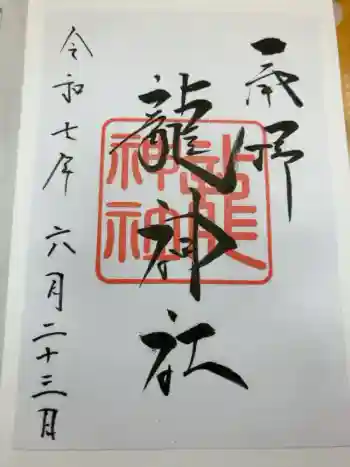 龍神社
令和七年 六月二十三日
龍神社